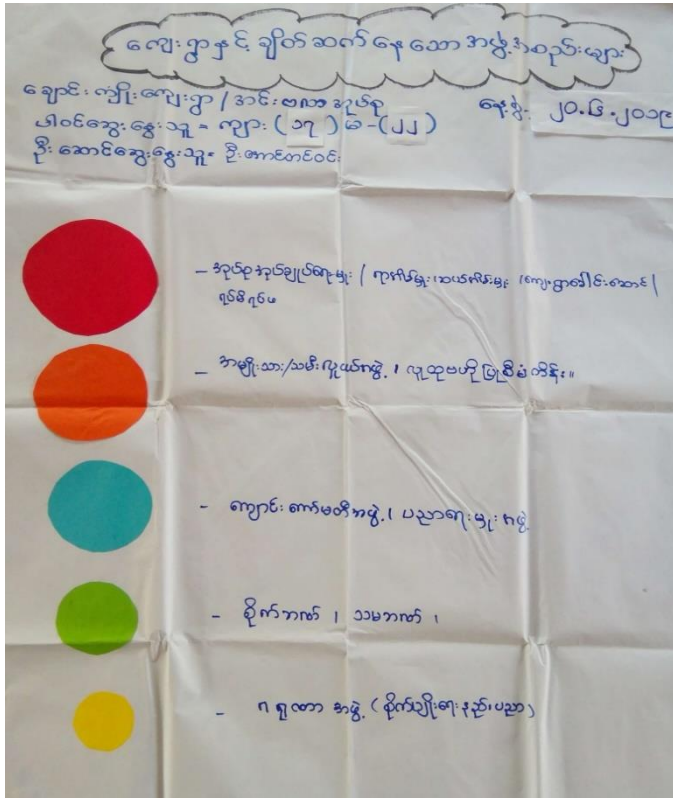 ကျေးရွာနှင့် ချိတ်ဆက်နေသော အဖွဲ့အစည်းများ
ချောင်းကျိုးကျေးရွာ / အင်းဗလာအုပ်စု
နေ့စွဲ. ၂၀.၆.၂၀၁၉
ပါဝင်ဆွေးနွေးသူ = ကျား (၁၇) မ - (၂၂)
ဦးဆောင်ဆွေးနွေးသူ = ဦးအောင်တင်ဝင်း
– အုပ်စုအုပ်ချုပ်ရေးမှူး / ရာအိမ်မှူး၊ ဆယ်အိမ်မှူး ၊ကျေးရွာခေါင်းဆောင် /
ရပ်မိရပ်ဖ
– အမျိုးသား/သမီးလူငယ်အဖွဲ့ ၊ လူထုဗဟိုပြုစီမံကိန်း။
- ကျောင်းကော်မတီအဖွဲ့ ၊ ပညာရေးမှူးအဖွဲ့
- စိုက်ဘဏ် ၊ သမဘဏ် ၊
- ဂရုဏာ အဖွဲ့ (စိုက်ပျိုးရေးနည်းပညာ)